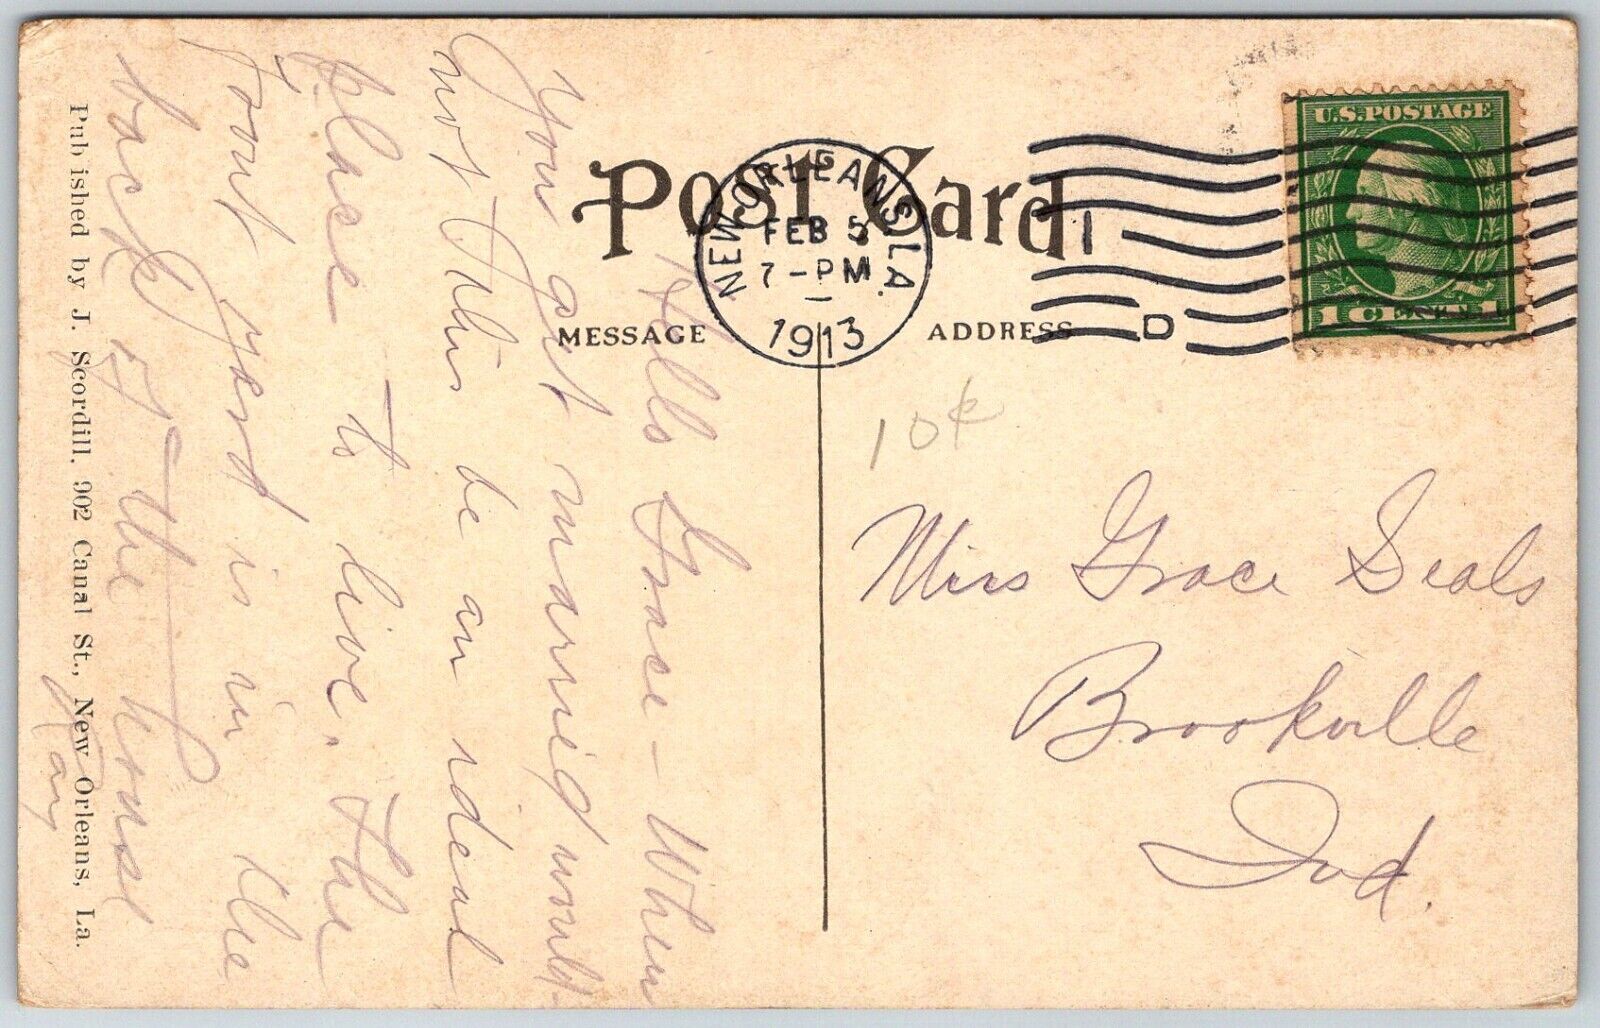 Post Card
NEW ORLEANS, LA.
FEB 5
7-PM
1913
1
D
U.S. POSTAGE
1 CENT 1
MESSAGE
ADDRESS
Hello Grace - When
You get married would
not this be an ideal
place to live. The
front yard is in the
back of the house
Ray
10¢
Miss Grace Seals
Brookville
Ind.
Published by J. Scordill. 902 Canal St., New Orleans, La.